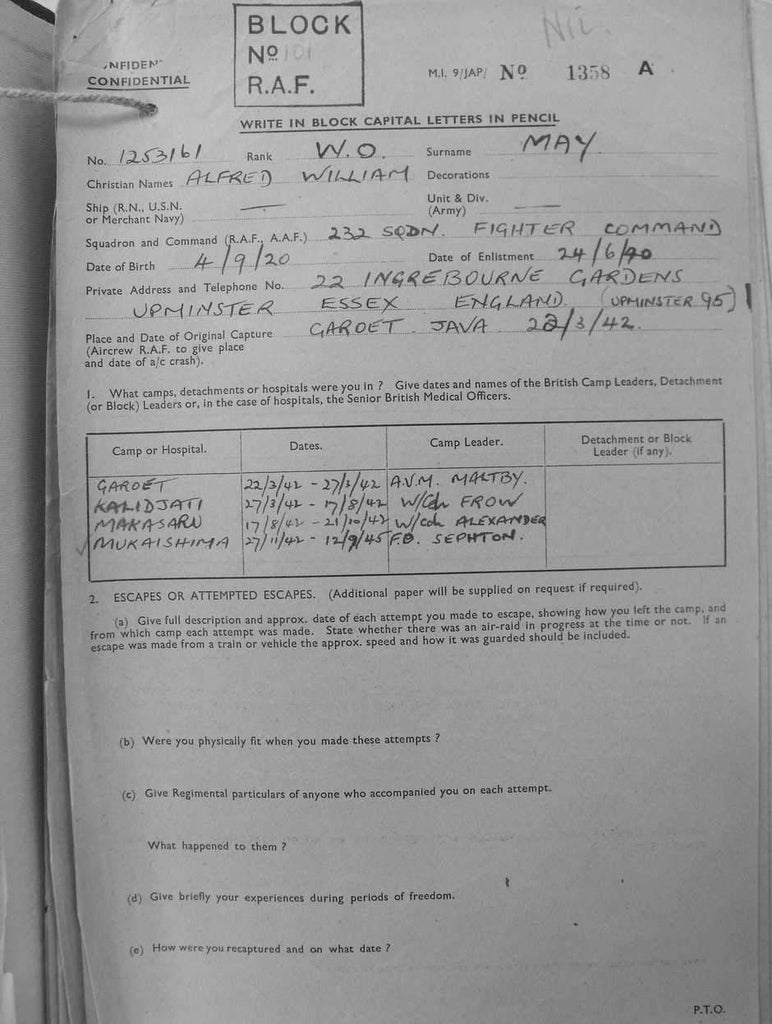 BLOCK
Nº 101
R.A.F.
NFIDEN
CONFIDENTIAL
Nil.
M.I. 9/JAP/ Nº 1358 A
WRITE IN BLOCK CAPITAL LETTERS IN PENCIL
No. 1253161 Rank W.O. Surname MAY
Christian Names ALFRED WILLIAM Decorations
Ship (R.N., U.S.N. or Merchant Navy) — Unit & Div. (Army) —
Squadron and Command (R.A.F., A.A.F.) 232 SQDN. FIGHTER COMMAND
Date of Birth 4/9/20 Date of Enlistment 24/6/40
Private Address and Telephone No. 22 INGREBOURNE GARDENS
UPMINSTER ESSEX ENGLAND. (UPMINSTER 95)1
Place and Date of Original Capture GAROET. JAVA. 22/3/42.
(Aircrew R.A.F. to give place
and date of a/c crash).
1. What camps, detachments or hospitals were you in ? Give dates and names of the British Camp Leaders, Detachment
(or Block) Leaders or, in the case of hospitals, the Senior British Medical Officers.
Camp or Hospital. Dates. Camp Leader. Detachment or Block Leader (if any).
GAROET 22/3/42 - 27/3/42 A.V.M. MALTBY.
KALIDJATI 27/3/42 - 17/8/42 W/Cdr FROW
MAKASARU 17/8/42 - 21/10/42 W/cdr ALEXANDER
MUKAISHIMA 27/11/42 - 12/9/45 F.O. SEPHTON.
2. ESCAPES OR ATTEMPTED ESCAPES. (Additional paper will be supplied on request if required).
(a) Give full description and approx. date of each attempt you made to escape, showing how you left the camp, and
from which camp each attempt was made. State whether there was an air-raid in progress at the time or not. If an
escape was made from a train or vehicle the approx. speed and how it was guarded should be included.
(b) Were you physically fit when you made these attempts ?
(c) Give Regimental particulars of anyone who accompanied you on each attempt.
What happened to them ?
(d) Give briefly your experiences during periods of freedom.
(e) How were you recaptured and on what date ?
P.T.O.